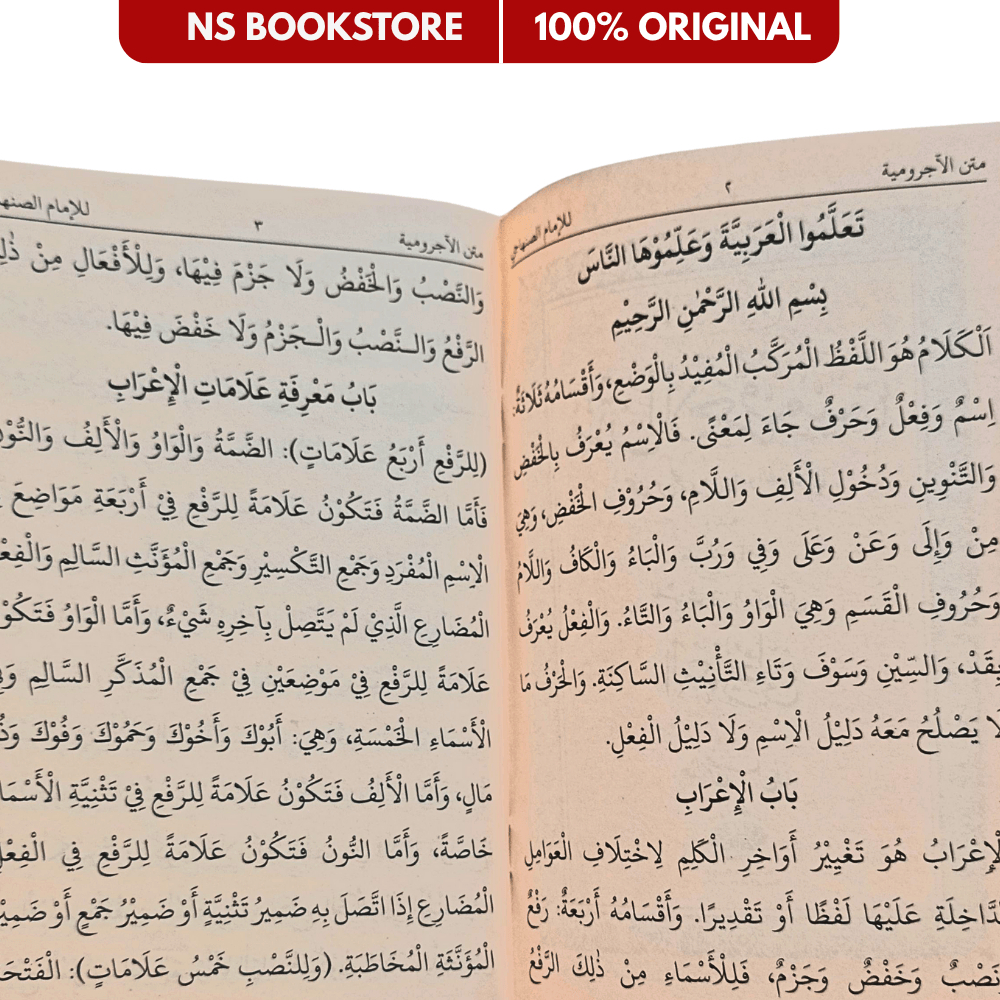 NS BOOKSTORE
100% ORIGINAL
متن الآجرومية ٢ للإمام الصنهاجي
تَعَلَّمُوا الْعَرَبِيَّةَ وَعَلِّمُوْهَا النَّاسَ
بِسْمِ اللهِ الرَّحْمٰنِ الرَّحِيْمِ
اَلْكَلَامُ هُوَ اللَّفْظُ الْمُرَكَّبُ الْمُفِيْدُ بِالْوَضْعِ، وَأَقْسَامُهُ ثَلَاثَةٌ:
اِسْمٌ وَفِعْلٌ وَحَرْفٌ جَاءَ لِمَعْنًى. فَالْاِسْمُ يُعْرَفُ بِالْخَفْضِ
وَالتَّنْوِينِ وَدُخُوْلِ الْأَلِفِ وَاللَّامِ، وَحُرُوْفِ الْخَفْضِ، وَهِيَ
مِنْ وَإِلَى وَعَنْ وَعَلَى وَفِي وَرُبَّ وَالْبَاءُ وَالْكَافُ وَاللَّامُ
وَحُرُوفِ الْقَسَمِ وَهِيَ الْوَاوُ وَالْبَاءُ وَالتَّاءُ. وَالْفِعْلُ يُعْرَفُ
بِقَدْ، وَالسِّيْنِ وَسَوْفَ وَتَاءِ التَّأْنِيْثِ السَّاكِنَةِ. وَالْحَرْفُ مَا
لَا يَصْلُحُ مَعَهُ دَلِيْلُ الْاِسْمِ وَلَا دَلِيْلُ الْفِعْلِ.
بَابُ الْإِعْرَابِ
الْإِعْرَابُ هُوَ تَغْيِيْرُ أَوَاخِرِ الْكَلِمِ لِاخْتِلَافِ الْعَوَامِلِ
الدَّاخِلَةِ عَلَيْهَا لَفْظًا أَوْ تَقْدِيرًا. وَأَقْسَامُهُ أَرْبَعَةٌ: رَفْعٌ
وَنَصْبٌ وَخَفْضٌ وَجَزْمٌ، فَلِلْأَسْمَاءِ مِنْ ذٰلِكَ الرَّفْعُ
متن الآجرومية ٣ للإمام
وَالنَّصْبُ وَالْخَفْضُ وَلَا جَزْمَ فِيْهَا، وَلِلْأَفْعَالِ مِنْ
الرَّفْعُ وَالنَّصْبُ وَالْجَزْمُ وَلَا خَفْضَ فِيْهَا.
بَابُ مَعْرِفَةِ عَلَامَاتِ الْإِعْرَابِ
(لِلرَّفْعِ أَرْبَعُ عَلَامَاتٍ): الضَّمَّةُ وَالْوَاوُ وَالْأَلِفُ وَالنُّوْنُ
فَأَمَّا الضَّمَّةُ فَتَكُوْنُ عَلَامَةً لِلرَّفْعِ فِيْ أَرْبَعَةِ مَوَاضِعَ
الْاِسْمِ الْمُفْرَدِ وَجَمْعِ التَّكْسِيْرِ وَجَمْعِ الْمُؤَنَّثِ السَّالِمِ وَالْفِعْلِ
الْمُضَارِعِ الَّذِيْ لَمْ يَتَّصِلْ بِآخِرِهِ شَيْءٌ، وَأَمَّا الْوَاوُ فَتَكُوْنُ
عَلَامَةً لِلرَّفْعِ فِيْ مَوْضِعَيْنِ فِيْ جَمْعِ الْمُذَكَّرِ السَّالِمِ
الْأَسْمَاءِ الْخَمْسَةِ، وَهِيَ: أَبُوْكَ وَأَخُوْكَ وَحَمُوْكَ وَفُوْكَ
مَالٍ، وَأَمَّا الْأَلِفُ فَتَكُوْنُ عَلَامَةً لِلرَّفْعِ فِيْ تَثْنِيَّةِ الْأَسْمَاءِ
خَاصَّةً، وَأَمَّا النُّونُ فَتَكُوْنُ عَلَامَةً لِلرَّفْعِ فِي الْفِعْلِ
الْمُضَارِعِ إِذَا اتَّصَلَ بِهِ ضَمِيرُ تَثْنِيَّةٍ أَوْ ضَمِيْرُ جَمْعٍ أَوْ ضَمِيْرُ
الْمُؤَنَّثَةِ الْمُخَاطَبَةِ. (وَلِلنَّصْبِ خَمْسُ عَلَامَاتٍ): الْفَتْحَةُ